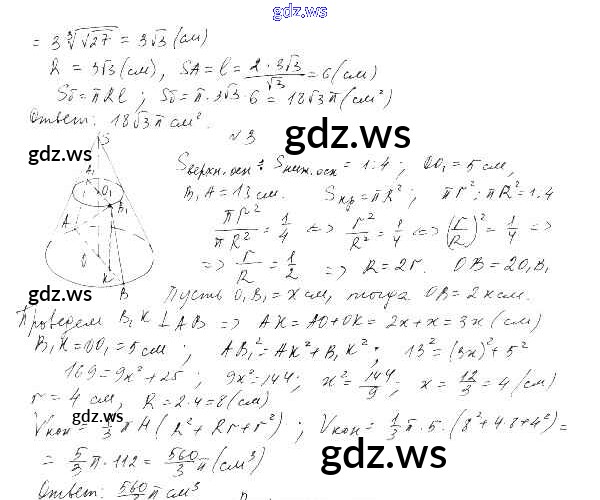 gdz.ws
= 3∛√27 = 3√3 (см)
R = 3√3 (см), SA = l = 2·3√3/√3 = 6 (см)
Sб = πRl ; Sб = π·3√3·6 = 18√3π (см²)
Ответ: 18√3π см².
N 3
gdz.ws
gdz.ws
Sверхн.осн : Sниж.осн = 1:4 ; OO₁ = 5 см,
B₁A = 13 см. Sкр = πR² ; πr² : πR² = 1:4
πr²/πR² = 1/4 <=> r²/R² = 1/4 <=> (r/R)² = 1/4 =>
=> r/R = 1/2 => R = 2r. OB = 2O₁B₁
gdz.ws
Пусть O₁B₁ = x см, тогда OB = 2x см.
Проведем B₁K ⊥ AB => AK = AO + OK = 2x + x = 3x (см)
B₁K = OO₁ = 5 см ; AB₁² = AK² + B₁K² ; 13² = (3x)² + 5²
169 = 9x² + 25 ; 9x² = 144 ; x² = 144/9 ; x = 12/3 = 4 (см)
r = 4 см, R = 2·4 = 8 (см)
gdz.ws
Vкон = 1/3 πH (R² + Rr + r²) ; Vкон = 1/3 π·5·(8² + 4·8 + 4²) =
= 5/3 π·112 = 560/3 π (см³)
gdz.ws
Ответ: 560/3 π см³